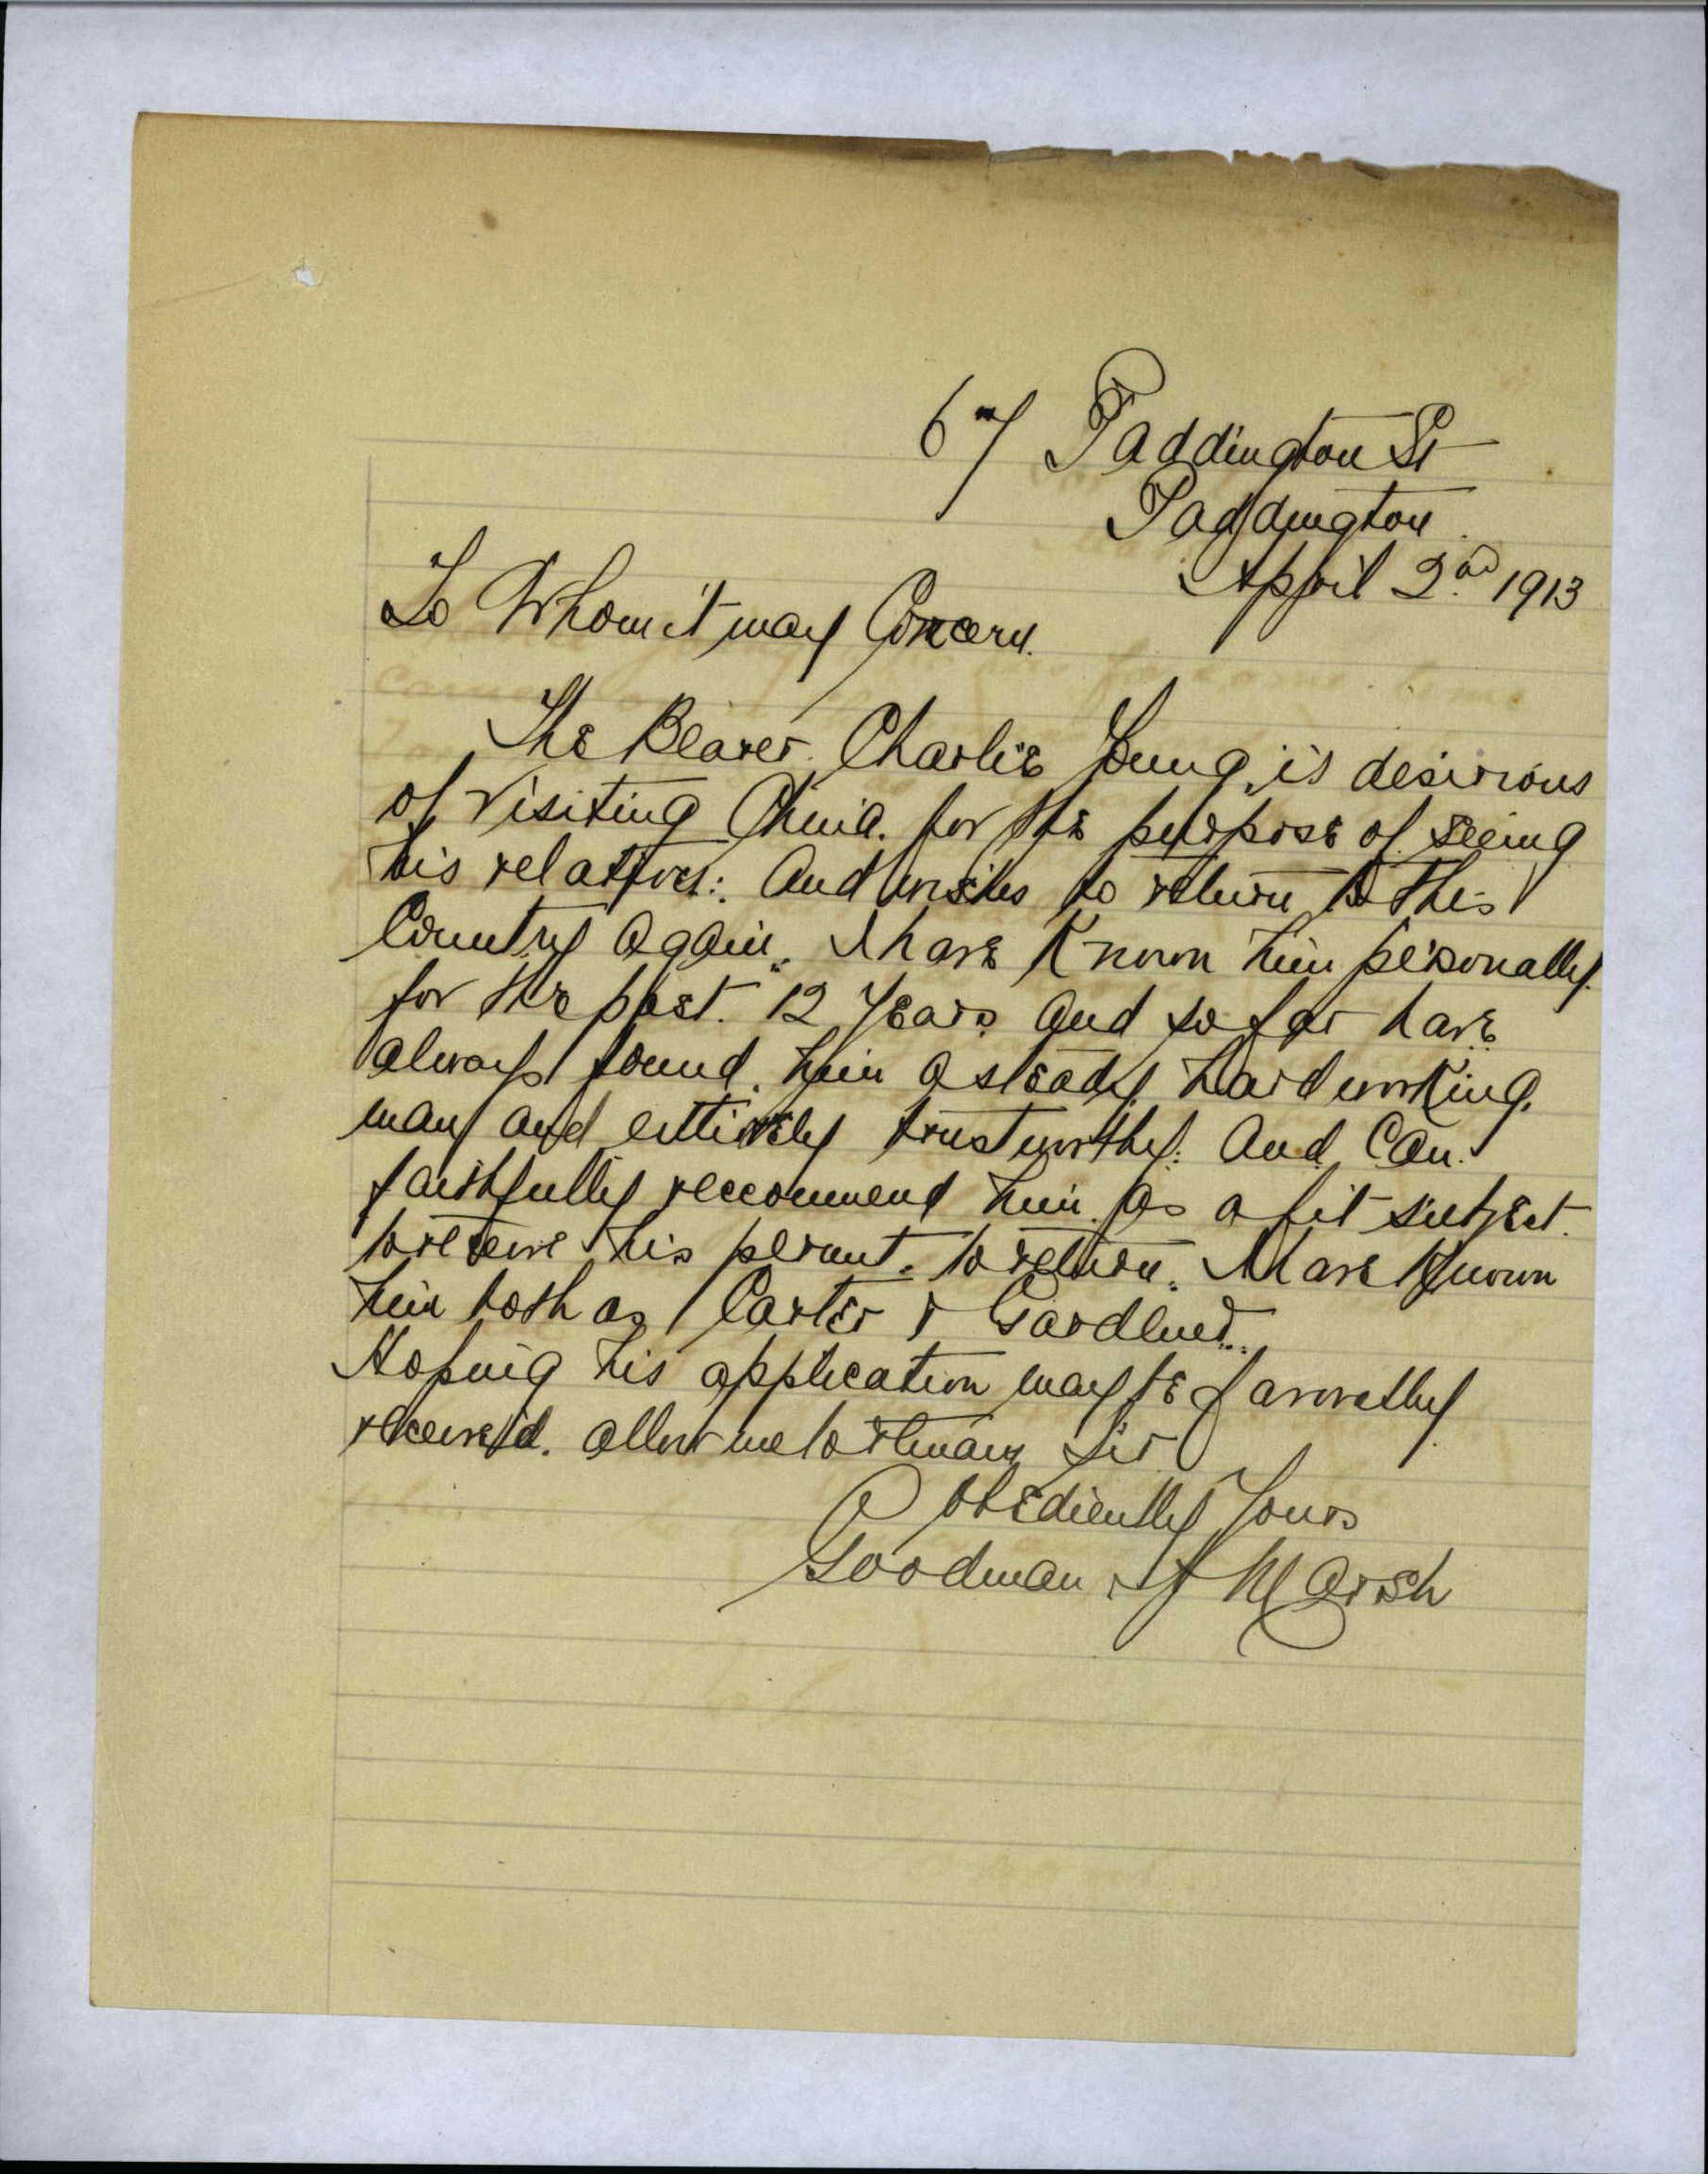 67 Paddington St
Paddington
April 2nd 1913
To Whom it may Concern.
The Bearer. Charlie Young, is desirous
of visiting China. for the purpose of seeing
his relatives: And wishes to return to this
Country again. I have Known him personally.
for the past. 12 Years and so far have
always found. him a steady hard working.
man and entirely trustworthy: And Can.
faithfully reccommend him. as a fit subject.
to receive his permit. to return. I have Known
him both as Carter & Gardener..
Hoping his application may be favorably
received. allow me to remain Sir
Obediently Yours
Goodman A Marsh